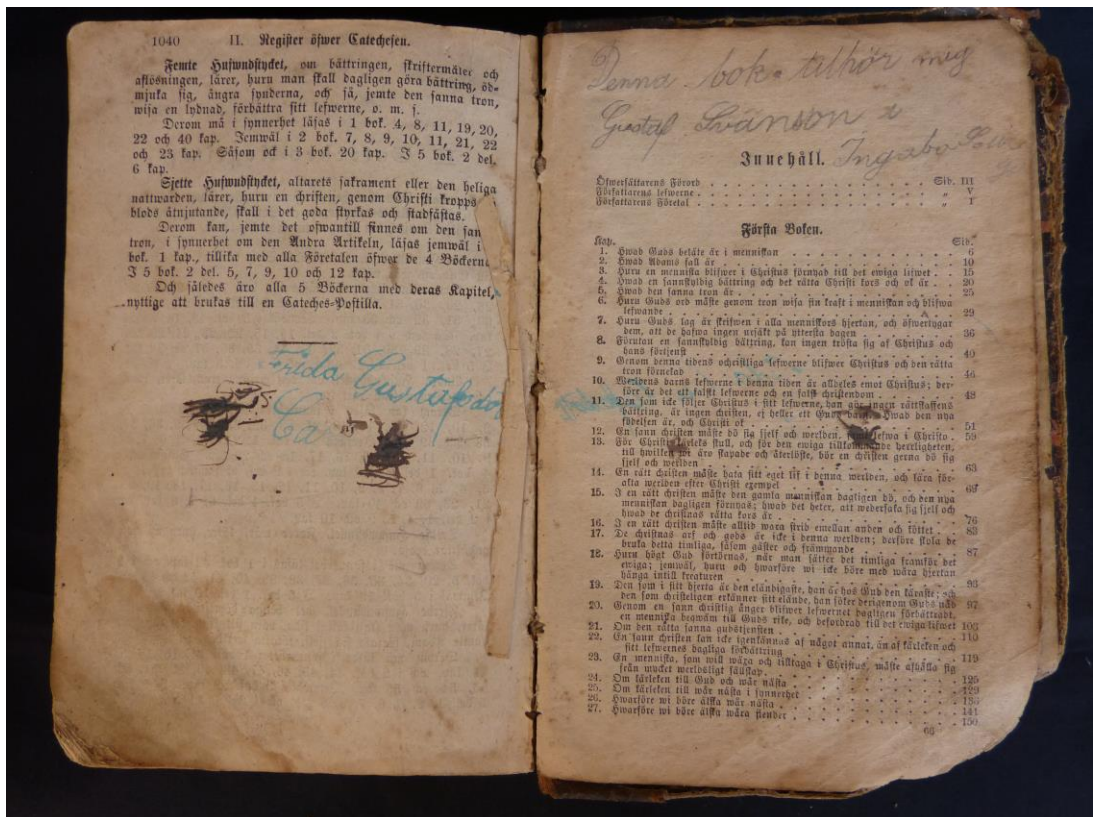 1040 II. Register öfwer Catechesen.
Femte Hufwudstycket, om bättringen, skriftermålet och
aflösningen, lärer, huru man skall dagligen göra bättring, öd-
mjuka sig, ångra synderna, och så, jemte den sanna tron,
wisa en ny lydnad, förbättra sitt lefwerne, o. m. s.
Derom må i synnerhet läsas i 1 bok. 4, 8, 11, 19, 20,
22 och 40 kap. Jemwäl i 2 bok. 7, 8, 9, 10, 11, 21, 22
och 23 kap. Såsom ock i 3 bok. 20 kap. I 5 bok. 2 del.
6 kap.
Sjette Hufwudstycket, altarets sakrament eller den heliga
nattwarden, lärer, huru en christen, genom Christi kropps
blods åtnjutande, skall i det goda styrkas och stadfästas.
Derom kan, jemte det ofwantill finnes om den san
tron, i synnerhet om den Andra Artikeln, läsas jemwäl i
bok. 1 kap., tillika med alla Företalen öfwer de 4 Böckern
I 5 bok. 2 del. 5, 7, 9, 10 och 12 kap.
Och således äro alla 5 Böckerna med deras Kapitel,
nyttige att brukas till en Cateches-Postilla.
Frida Gustafsdot
Denna bok tilhör mig
Gustaf Svänson
Ingabo
Innehåll.
Öfwersättarens Förord Sid. III
Författarens lefwerne „ V
Författarens Företal „ 1
Första Boken.
Kap. Sid.
1. Hwad Guds beläte är i menniskan 6
2. Hwad Adams fall är 10
3. Huru en menniska blifwer i Christus förnyad till det ewiga lifwet 15
4. Hwad en sannskyldig bättring och det rätta Christi kors och ok är 20
5. Hwad den sanna tron är 25
6. Huru Guds ord måste genom tron wisa sin kraft i menniskan och blifwa
lefwande 29
7. Huru Guds lag är skrifwen i alla menniskors hjertan, och öfwertygar
dem, att de hafwa ingen ursäkt på yttersta dagen 36
8. Förutan en sannskyldig bättring, kan ingen trösta sig af Christus och
hans förtjenst 40
9. Genom denna tidens ochristliga lefwerne blifwer Christus och den rätta
tron förnekad 46
10. Werldens barns lefwerne i denna tiden är alldeles emot Christus; der-
före är det ett falskt lefwerne och en falsk christendom 48
11. Den som icke följer Christus i sitt lefwerne, han gör ingen rättskaffens
bättring, är ingen christen, ej heller ett Guds barn. Hwad den nya
födelsen är, och Christi ok 51
12. En sann christen måste dö sig sjelf och werlden, samt lefwa i Christo 59
13. För Christi kärleks skull, och för den ewiga tillkommande herrligheten,
till hwilken wi äro skapade och återlöste, bör en christen gerna dö sig
sjelf och werlden 63
14. En rätt christen måste hata sitt eget lif i denna werlden, och lära för-
akta werlden efter Christi exempel 69
15. I en rätt christen måste den gamla menniskan dagligen dö, och den nya
menniskan dagligen förnyas; hwad det heter, att wedersaka sig sjelf och
hwad de christnas rätta kors är 76
16. I en rätt christen måste alltid wara strid emellan anden och köttet 83
17. De christnas arf och gods är icke i denna werlden; derföre skola de
bruka detta timliga, såsom gäster och främmande 87
18. Huru högt Gud förtörnas, när man sätter det timliga framför det
ewiga; jemwäl, huru och hwarföre wi icke böre med wåra hjertan
hänga intill kreaturen 93
19. Den som i sitt hjerta är den eländigaste, han är hos Gud den käraste; och
den som christeligen erkänner sitt elände, han söker derigenom Guds nåd 97
20. Genom en sann christlig ånger blifwer lefwernet dagligen förbättradt,
en menniska beqwäm till Guds rike, och befordrad till det ewiga lifwet 103
21. Om den rätta sanna gudstjensten 110
22. En sann christen kan icke igenkännas af något annat, än af kärleken och
sitt lefwernes dagliga förbättring 119
23. En menniska, som will wäxa och tilltaga i Christus, måste afhålla sig
från mycket werldsligt sällskap
24. Om kärleken till Gud och wår nästa 125
25. Om kärleken till wår nästa i synnerhet 129
26. Hwarföre wi böre älska wår nästa 136
27. Hwarföre wi böre älska wåra fiender 141
150
66